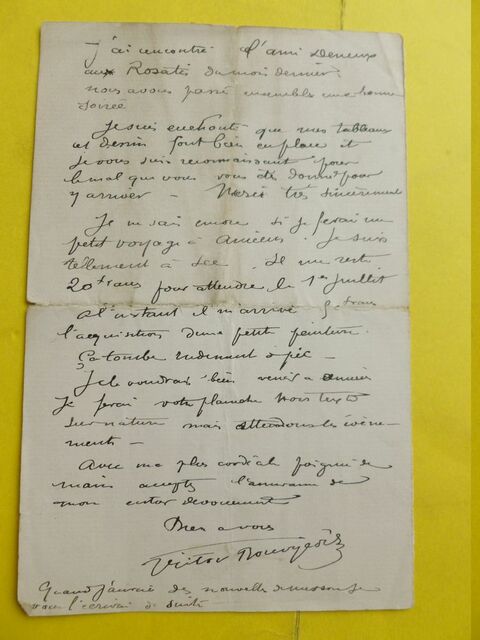 J'ai rencontré l'ami
aux Rosatis du mois dernier
nous avons passé ensembles une bonne
soirée
Je suis enchanté que mes tableaux
et dessin font bien en place et
je vous suis reconnaissant pour
le mal que vous vous êtes donné pour
y arriver — Merci très sincèrement
Je ne sais encore si je ferai un
petit voyage à Amiens. Je suis
tellement à sec. Il me reste
20 frans pour attendre le 1er Juillet
à l'instant il m'arrive
l'acquisition d'une petite peinture.
Ça tombe rudement à pic —
Je voudrais bien venir a
Je ferai votre planche hors texte
sur nature mais attendons les évène-
ments —
Avec ma plus cordiale poignée de
mains acceptez l'assurance de
mon entier devouement
Bien a vous
Victor Bourgeois
Quand j'aurai des nouvelles
vous l'écrirai de suite